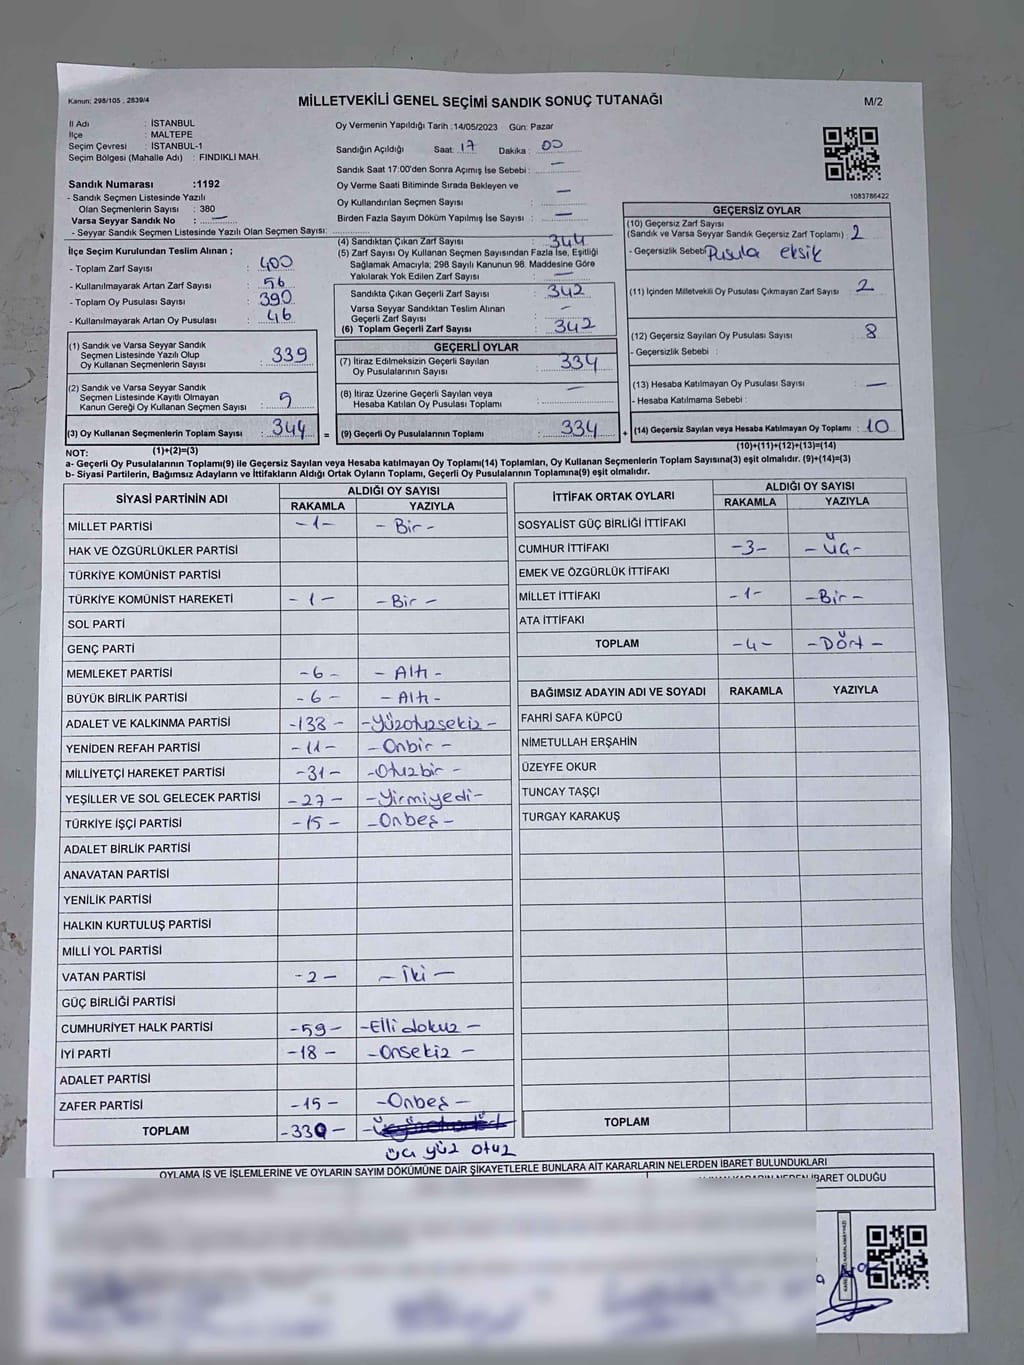 Kanun: 298/105 , 2839/4
MİLLETVEKİLİ GENEL SEÇİMİ SANDIK SONUÇ TUTANAĞI
M/2
İl Adı : İSTANBUL
İlçe : MALTEPE
Seçim Çevresi : İSTANBUL-1
Seçim Bölgesi (Mahalle Adı) : FINDIKLI MAH.
Sandık Numarası :1192
- Sandık Seçmen Listesinde Yazılı
Olan Seçmenlerin Sayısı : 380
Varsa Seyyar Sandık No : —
- Seyyar Sandık Seçmen Listesinde Yazılı Olan Seçmen Sayısı:
Oy Vermenin Yapıldığı Tarih :14/05/2023 Gün: Pazar
Sandığın Açıldığı Saat: 17 Dakika : 00
Sandık Saat 17:00'den Sonra Açımış İse Sebebi : —
Oy Verme Saati Bitiminde Sırada Bekleyen ve
Oy Kullandırılan Seçmen Sayısı : —
Birden Fazla Sayım Döküm Yapılmış İse Sayısı : —
1083786422
İlçe Seçim Kurulundan Teslim Alınan ;
- Toplam Zarf Sayısı : 400
- Kullanılmayarak Artan Zarf Sayısı : 56
- Toplam Oy Pusulası Sayısı : 390
- Kullanılmayarak Artan Oy Pusulası : 46
(1) Sandık ve Varsa Seyyar Sandık
Seçmen Listesinde Yazılı Olup
Oy Kullanan Seçmenlerin Sayısı : 339
(2) Sandık ve Varsa Seyyar Sandık
Seçmen Listesinde Kayıtlı Olmayan
Kanun Gereği Oy Kullanan Seçmen Sayısı : 5
(3) Oy Kullanan Seçmenlerin Toplam Sayısı : 344 =
(1)+(2)=(3)
(4) Sandıktan Çıkan Zarf Sayısı : 344
(5) Zarf Sayısı Oy Kullanan Seçmen Sayısından Fazla İse, Eşitliği
Sağlamak Amacıyla; 298 Sayılı Kanunun 98. Maddesine Göre
Yakılarak Yok Edilen Zarf Sayısı : —
Sandıkta Çıkan Geçerli Zarf Sayısı : 342
Varsa Seyyar Sandıktan Teslim Alınan
Geçerli Zarf Sayısı : —
(6) Toplam Geçerli Zarf Sayısı : 342
GEÇERLİ OYLAR
(7) İtiraz Edilmeksizin Geçerli Sayılan
Oy Pusulalarının Sayısı : 334
(8) İtiraz Üzerine Geçerli Sayılan veya
Hesaba Katılan Oy Pusulası Toplamı : —
(9) Geçerli Oy Pusulalarının Toplamı : 334 +
GEÇERSİZ OYLAR
(10) Geçersiz Zarf Sayısı
(Sandık ve Varsa Seyyar Sandık Geçersiz Zarf Toplamı) : 2
- Geçersizlik Sebebi: Pusula eksik
(11) İçinden Milletvekili Oy Pusulası Çıkmayan Zarf Sayısı : 2
(12) Geçersiz Sayılan Oy Pusulası Sayısı : 8
- Geçersizlik Sebebi :
(13) Hesaba Katılmayan Oy Pusulası Sayısı : —
- Hesaba Katılmama Sebebi :
(14) Geçersiz Sayılan veya Hesaba Katılmayan Oy Toplamı : 10
(10)+(11)+(12)+(13)=(14)
NOT:
a- Geçerli Oy Pusulalarının Toplamı(9) ile Geçersiz Sayılan veya Hesaba katılmayan Oy Toplamı(14) Toplamları, Oy Kullanan Seçmenlerin Toplam Sayısına(3) eşit olmalıdır. (9)+(14)=(3)
b- Siyasi Partilerin, Bağımsız Adayların ve İttifakların Aldığı Ortak Oyların Toplamı, Geçerli Oy Pusulalarının Toplamına(9) eşit olmalıdır.
SİYASİ PARTİNİN ADI ALDIĞI OY SAYISI
RAKAMLA YAZIYLA
MİLLET PARTİSİ -1- - Bir -
HAK VE ÖZGÜRLÜKLER PARTİSİ
TÜRKİYE KOMÜNİST PARTİSİ
TÜRKİYE KOMÜNİST HAREKETİ -1- - Bir -
SOL PARTİ
GENÇ PARTİ
MEMLEKET PARTİSİ -6- - Altı -
BÜYÜK BİRLİK PARTİSİ -6- - Altı -
ADALET VE KALKINMA PARTİSİ -138- -Yüzotuzsekiz-
YENİDEN REFAH PARTİSİ -11- -Onbir-
MİLLİYETÇİ HAREKET PARTİSİ -31- -Otuzbir-
YEŞİLLER VE SOL GELECEK PARTİSİ -27- -Yirmiyedi-
TÜRKİYE İŞÇİ PARTİSİ -15- -Onbeş-
ADALET BİRLİK PARTİSİ
ANAVATAN PARTİSİ
YENİLİK PARTİSİ
HALKIN KURTULUŞ PARTİSİ
MİLLİ YOL PARTİSİ
VATAN PARTİSİ -2- - İki -
GÜÇ BİRLİĞİ PARTİSİ
CUMHURİYET HALK PARTİSİ -59- -Elli dokuz-
İYİ PARTİ -18- -Onsekiz-
ADALET PARTİSİ
ZAFER PARTİSİ -15- -Onbeş-
TOPLAM -330-
üç yüz otuz
İTTİFAK ORTAK OYLARI ALDIĞI OY SAYISI
RAKAMLA YAZIYLA
SOSYALİST GÜÇ BİRLİĞİ İTTİFAKI
CUMHUR İTTİFAKI -3- -Üç-
EMEK VE ÖZGÜRLÜK İTTİFAKI
MİLLET İTTİFAKI -1- -Bir-
ATA İTTİFAKI
TOPLAM -4- -Dört-
BAĞIMSIZ ADAYIN ADI VE SOYADI RAKAMLA YAZIYLA
FAHRİ SAFA KÜPCÜ
NİMETULLAH ERŞAHİN
ÜZEYFE OKUR
TUNCAY TAŞÇI
TURGAY KARAKUŞ
TOPLAM
OYLAMA İŞ VE İŞLEMLERİNE VE OYLARIN SAYIM DÖKÜMÜNE DAİR ŞİKAYETLERLE BUNLARA AİT KARARLARIN NELERDEN İBARET BULUNDUKLARI
İBARET OLDUĞU